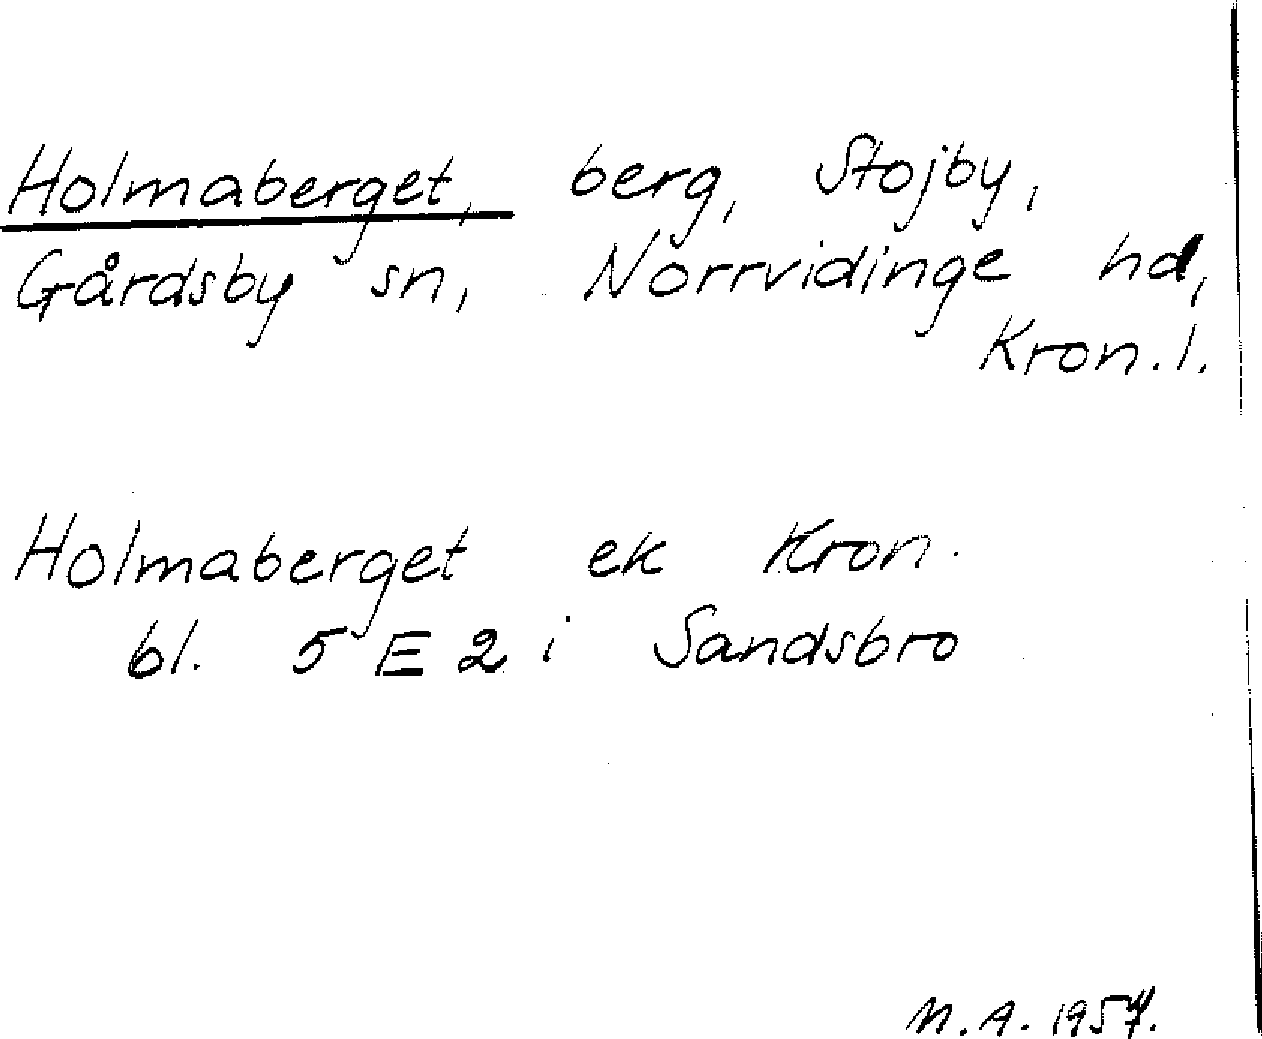 Holmaberget, berg, Stojby,
Gårdsby sn, Norrvidinge hd,
Kron. l.
Holmaberget ek Kron.
bl. 5 E 2 i Sandsbro
M. A. 1957.